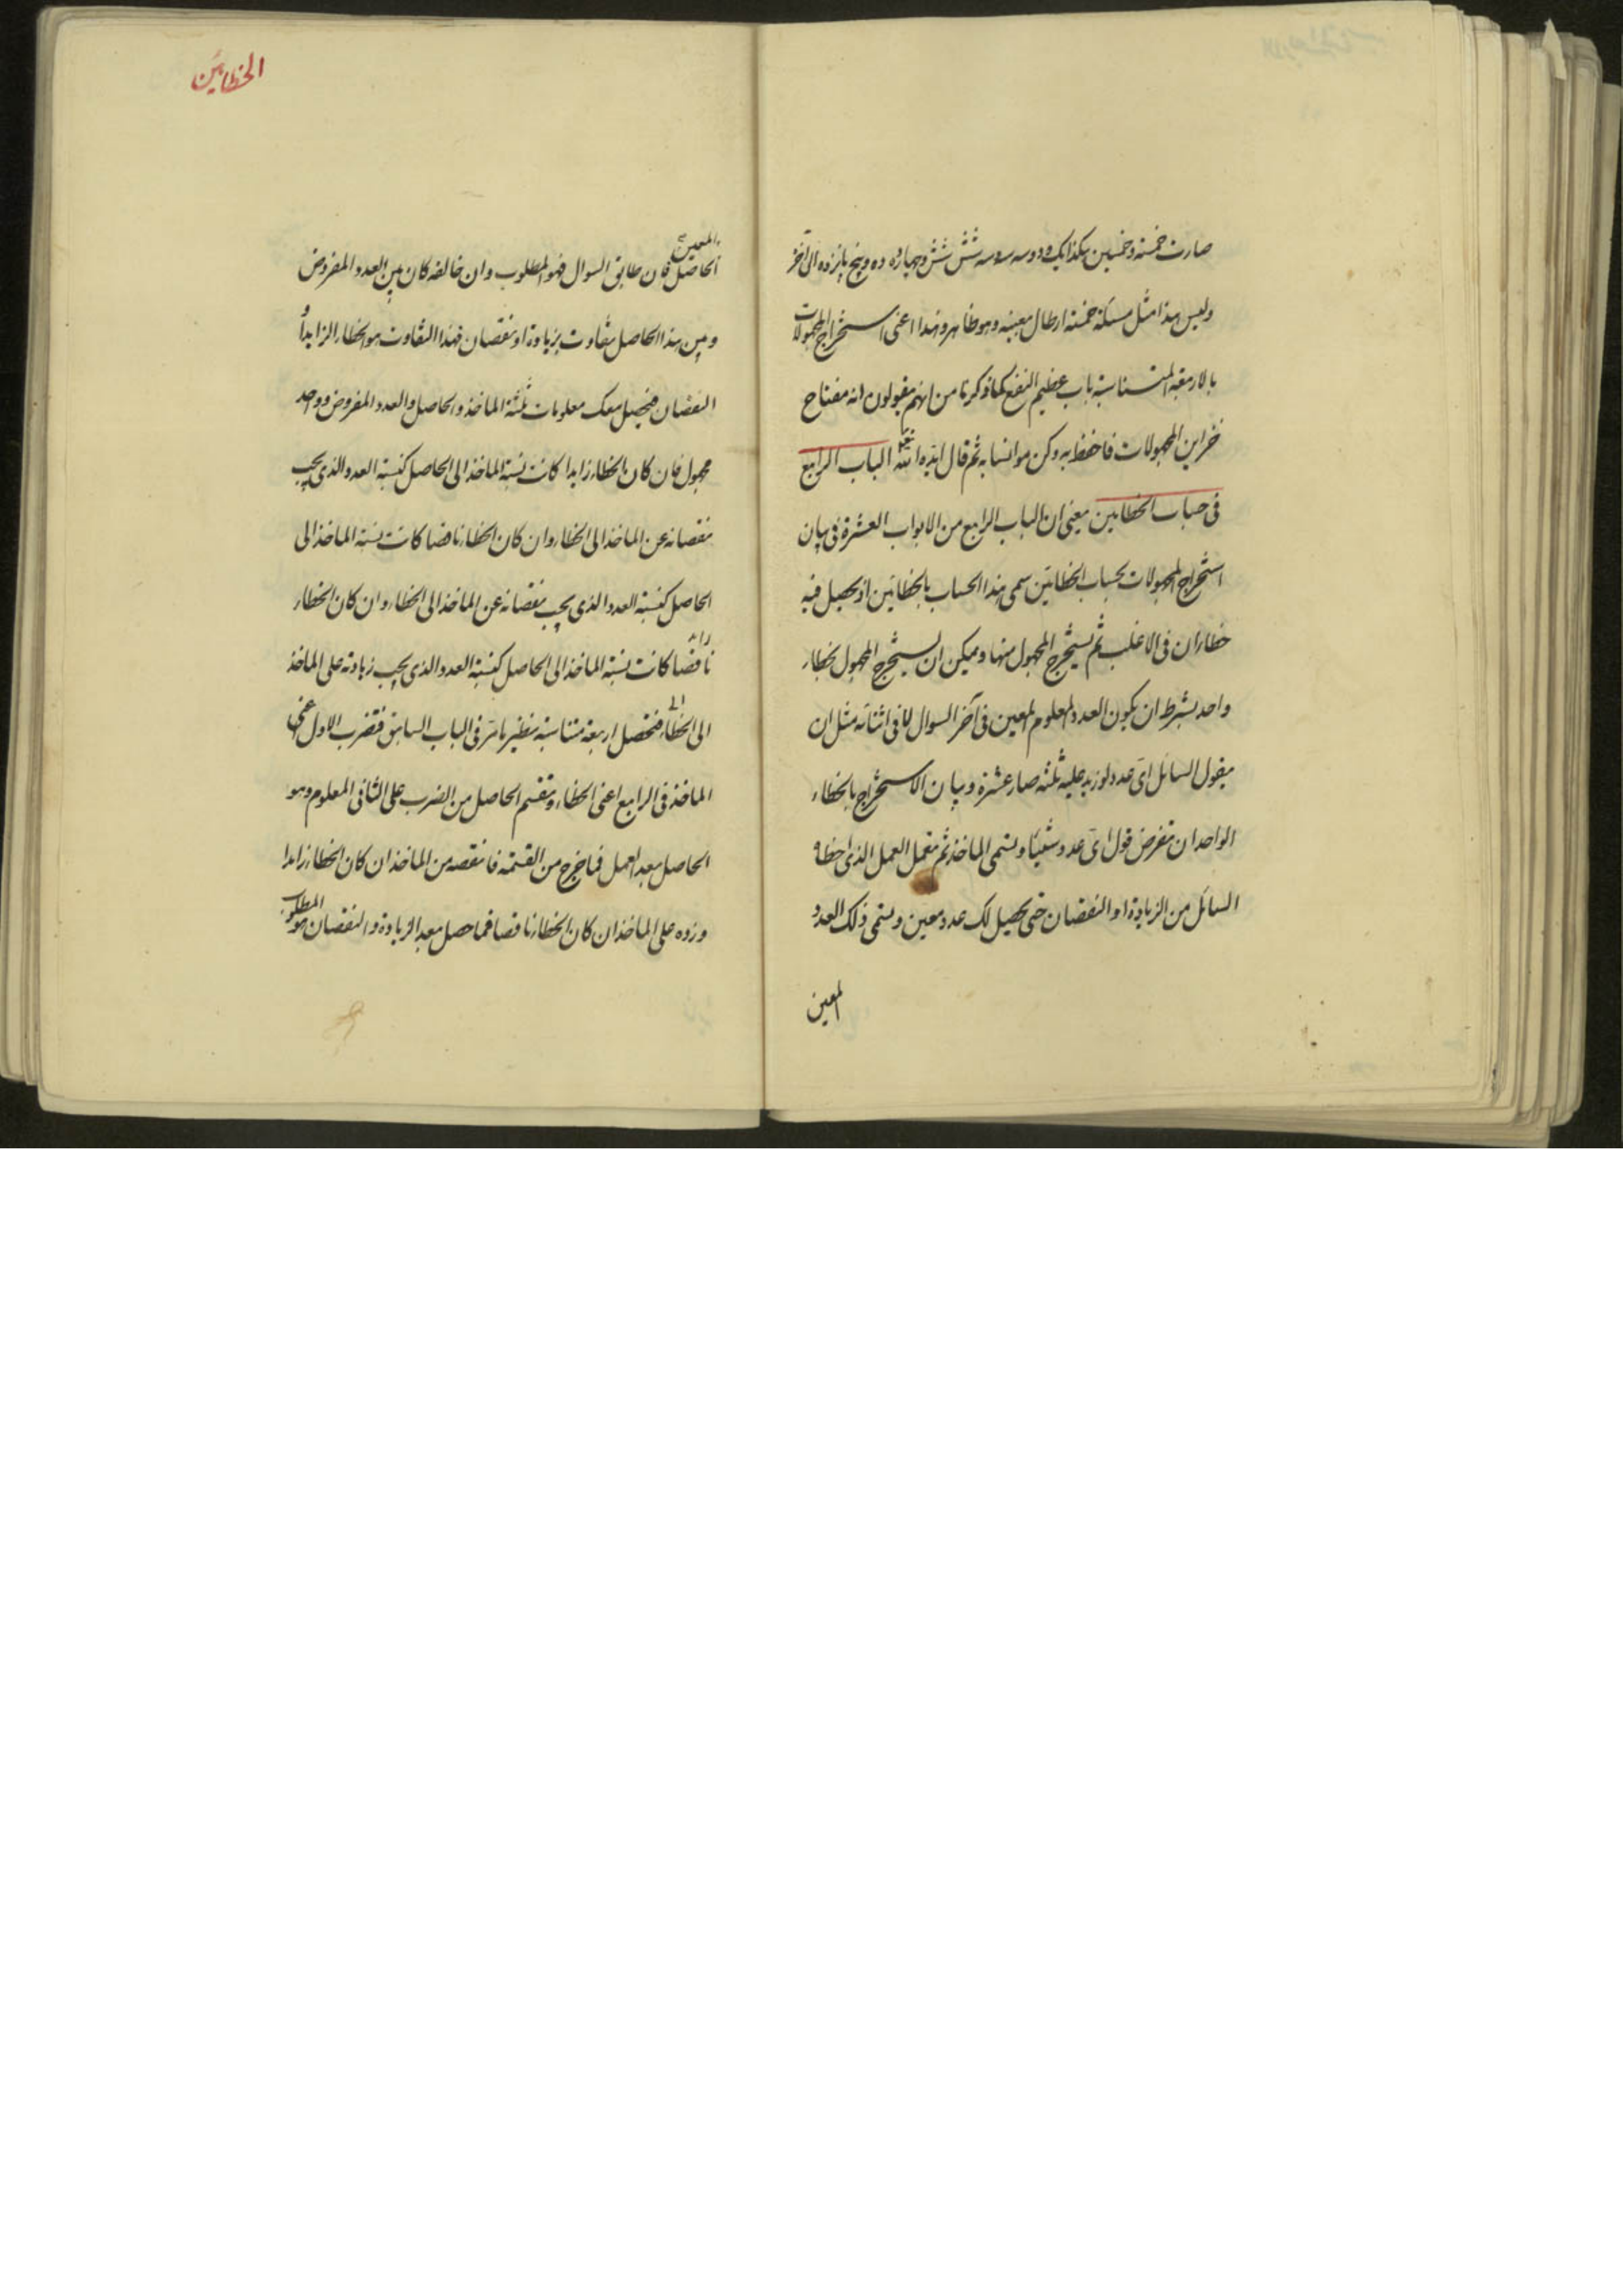 صارت خمسة وخمسين هكذا یک ودو سه سه شش شش وچهار ده ده وپنج پانزده الى آخر
وليس هذا مثل مسئلة خمسة ارطال معينه وهو ظاهر وهذا اعنى استخراج المجهولات
بالاربعة المتناسبة باب عظيم النفع كما ذكرنا من انهم يقولون انه مفتاح
خزاين المجهولات فاحفظ به وكن مؤانسا به ثم قال ايده الله تعالى الباب الرابع
فى حساب الخطايين يعنى ان الباب الرابع من الابواب العشرة فى بيان
استخراج المجهولات بحساب الخطائين سمى هذا الحساب بالخطائين اذ يحصل فيه
خطاران فى الاغلب ثم يستخرج المجهول منها ويمكن ان يستخرج المجهول بخطاء
واحد بشرط ان يكون العدد المعلوم المعين فى آخر السوال لا فى اثنائه مثل ان
يقول السائل اى عدد لو زيد عليه ثلثه صار عشرة وبيان الاستخراج بالخطاء
الواحد ان تفرض قول اى عدد شيئا ويسمى الماخذ ثم تعمل العمل الذى اعطاه
السائل من الزيادة او النقصان حتى يحصل لك عدد معين ويسمى ذلك العدد
المعين
الخطايين
المعين
الحاصل فان طابق السوال فهو المطلوب وان خالفه كان بين العدد المفروض
وبين هذا الحاصل تفاوت بزيادة او نقصان فهذا التفاوت هو الخطاء الزايد او
النقصان فيحصل معك معلومات ثلثة الماخذ والحاصل والعدد المفروض وواحد
مجهول فان كان الخطاء زايدا كانت نسبة الماخذ الى الحاصل كنسبة العدد الذى يجب
نقصانه عن الماخذ الى الخطاء وان كان الخطاء ناقصا كانت نسبة الماخذ الى
الحاصل كنسبة العدد الذى يجب نقصانه عن الماخذ الى الخطاء وان كان الخطاء
زائد
ناقصا كانت نسبة الماخذ الى الحاصل كنسبة العدد الذى يجب زيادته على الماخذ
الى الخطاء فتحصل اربعة متناسبة نظير ما مر فى الباب السابق فتضرب الاول اعنى
الماخذ فى الرابع اعنى الخطاء وتقسم الحاصل من الضرب على الثانى المعلوم وهو
الحاصل بعد العمل فما خرج من القسمة فانقصه من الماخذ ان كان الخطاء زايدا
وزده على الماخذ ان كان الخطاء ناقصا فما حصل بعد الزيادة والنقصان هو المطلوب